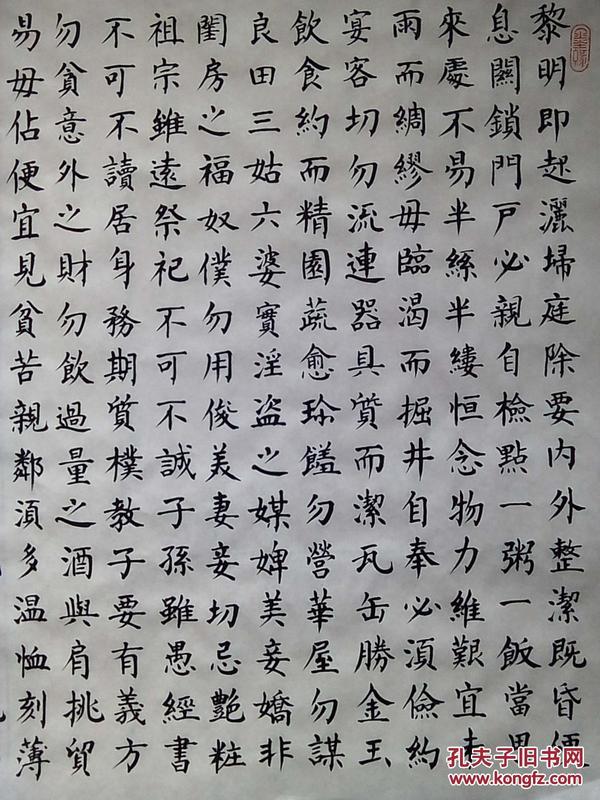 黎明即起灑埽庭除要内外整潔既昏便
息關鎖門户必親自檢點一粥一飯當思
來處不易半絲半縷恒念物力維艱宜未
雨而綢繆毋臨渴而掘井自奉必湏儉約
宴客切勿流連器具質而潔瓦缶勝金玉
飲食約而精園蔬愈珎饈勿營華屋勿謀
良田三姑六婆實淫盗之媒婢美妾嬌非
閨房之福奴僕勿用俊美妻妾切忌艷粧
祖宗雖遠祭祀不可不誠子孫雖愚經書
不可不讀居身務期質樸教子要有義方
勿貪意外之財勿飲過量之酒與肩挑貿
易毋佔便宜見貧苦親鄰湏多温恤刻薄
孔夫子旧书网
www.kongfz.com